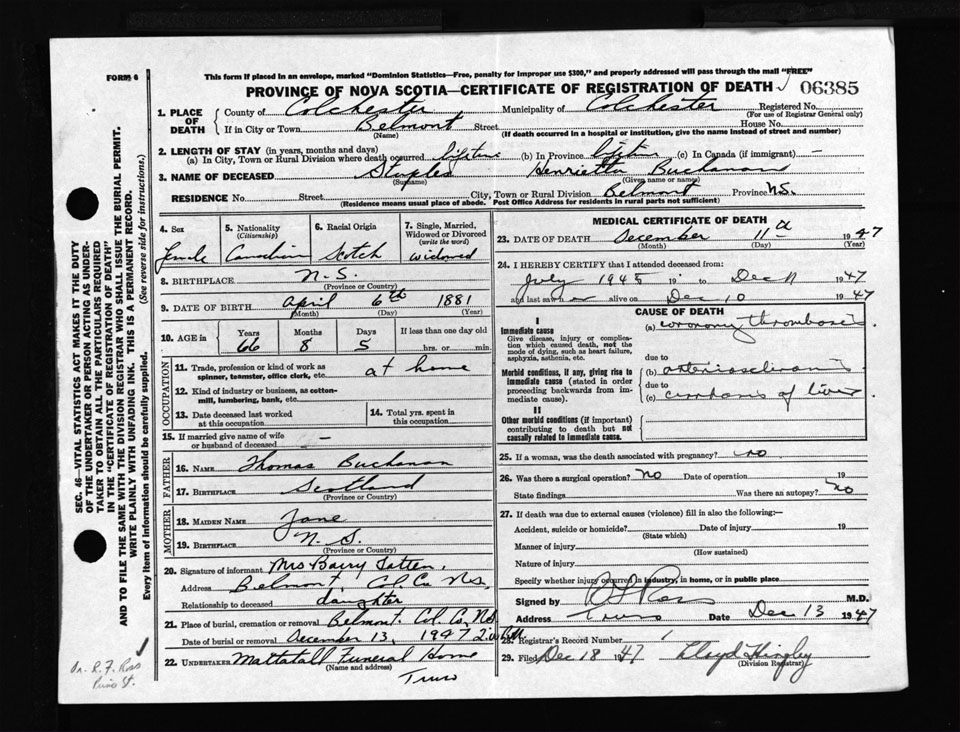 FORM 6
This form if placed in an envelope, marked "Dominion Statistics—Free, penalty for improper use $300," and properly addressed will pass through the mail "FREE"
PROVINCE OF NOVA SCOTIA—CERTIFICATE OF REGISTRATION OF DEATH 06385
1. PLACE OF DEATH County of Colchester Municipality of Colchester Registered No.
(For use of Registrar General only)
If in City or Town Belmont Street House No.
(Name) (If death occurred in a hospital or institution, give the name instead of street and number)
2. LENGTH OF STAY (in years, months and days)
(a) In City, Town or Rural Division where death occurred lifetime (b) In Province life (c) In Canada (if immigrant) —
3. NAME OF DECEASED Staples Henrietta Buchanan
(Surname) (Given name or names)
RESIDENCE No. Street City, Town or Rural Division Belmont Province N.S.
(Residence means usual place of abode. Post Office Address for residents in rural parts not sufficient)
4. Sex 5. Nationality (Citizenship) 6. Racial Origin 7. Single, Married, Widowed or Divorced (write the word)
female Canadian Scotch widowed
8. BIRTHPLACE N.S.
(Province or Country)
9. DATE OF BIRTH April 6th 1881
(Month) (Day) (Year)
10. AGE in Years Months Days If less than one day old
66 8 5 hrs. or min.
OCCUPATION
11. Trade, profession or kind of work as spinner, teamster, office clerk, etc. at home
12. Kind of industry or business, as cotton-mill, lumbering, bank, etc.
13. Date deceased last worked at this occupation
14. Total yrs. spent in this occupation
15. If married give name of wife or husband of deceased —
FATHER
16. NAME Thomas Buchanan
17. BIRTHPLACE Scotland
(Province or Country)
MOTHER
18. MAIDEN NAME Jane
19. BIRTHPLACE N.S.
(Province or Country)
20. Signature of informant Mrs Barry
Address Belmont Col. Co. N.S.
Relationship to deceased daughter
21. Place of burial, cremation or removal Belmont. Col. Co, N.S
Date of burial or removal December 13, 1947
22. UNDERTAKER Mattatall Funeral Home
(Name and address)
Truro
MEDICAL CERTIFICATE OF DEATH
23. DATE OF DEATH December 11 1947
(Month) (Day) (Year)
24. I HEREBY CERTIFY that I attended deceased from:
July 1945 19 to Dec 11 1947
and last saw h alive on Dec 10 1947
CAUSE OF DEATH
I
Immediate cause
Give disease, injury or complication which caused death, not the mode of dying, such as heart failure, asphyxia, asthenia, etc.
(a) coronary thrombosis
due to
Morbid conditions, if any, giving rise to immediate cause (stated in order proceeding backwards from immediate cause).
(b) arteriosclerosis
due to
(c) cirrhosis of liver
II
Other morbid conditions (if important) contributing to death but not causally related to immediate cause.
25. If a woman, was the death associated with pregnancy? no
26. Was there a surgical operation? No Date of operation 19
State findings Was there an autopsy? No
27. If death was due to external causes (violence) fill in also the following:—
Accident, suicide or homicide? Date of injury 19
(State which)
Manner of injury
(How sustained)
Nature of injury
Specify whether injury occurred in industry, in home, or in public place
Signed by R F Ross M.D.
Address Truro Date Dec 13 1947
28. Registrar's Record Number 1
29. Filed Dec 18 1947 Lloyd Hingley
(Division Registrar)
SEC. 46—VITAL STATISTICS ACT MAKES IT THE DUTY
OF THE UNDERTAKER OR PERSON ACTING AS UNDER-
TAKER TO OBTAIN ALL THE PARTICULARS REQUIRED
IN THE "CERTIFICATE OF REGISTRATION OF DEATH"
AND TO FILE THE SAME WITH THE DIVISION REGISTRAR WHO SHALL ISSUE THE BURIAL PERMIT.
WRITE PLAINLY WITH UNFADING INK. THIS IS A PERMANENT RECORD.
Every item of information should be carefully supplied. (See reverse side for instructions.)
Dr. R. F. Ross
St.